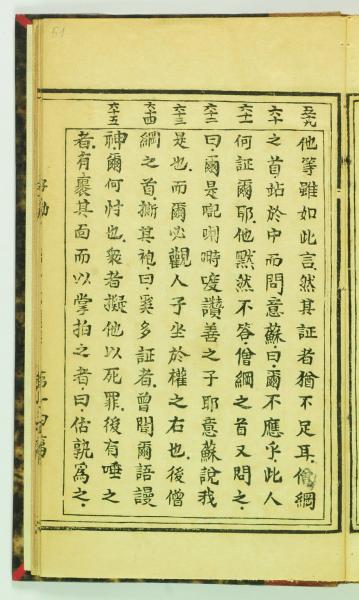 五十九 他等雖如此言然其証者猶不足耳僧綱
六十 之首站於中而問意蘇曰爾不應乎此人
六十一 何証爾耶他默然不答僧綱之首又問之
六十二 曰爾是呢唎嘶㗑讚善之子耶意蘇說我
六十三 是也而爾必觀人子坐於權之右也後僧
六十四 綱之首撕其袍曰奚多証者曾聞爾語謾
六十五 神爾何忖也衆者擬他以死罪後有唾之
者有裹其面而以掌拍之者曰估孰為之
第十四篇
51